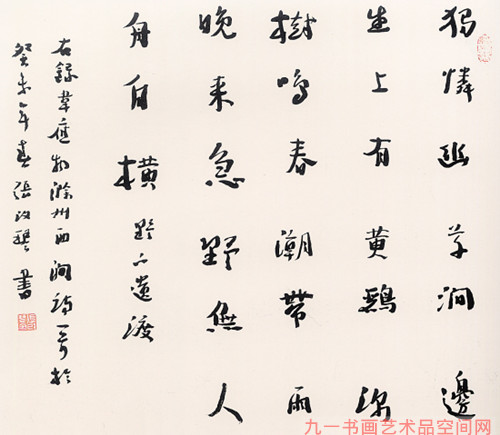 獨憐幽草澗邊
生上有黃鸝深
樹鳴春潮帶雨
晚來急野無人
舟自橫 野下遺渡
右錄韋應物滁州西澗詩一首於
癸未年春張改琴書
九一书画艺术品空间网